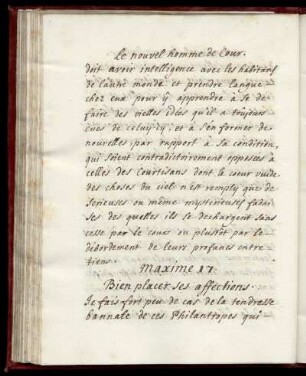 Le nouvel homme de Cour.
doit avoir intelligence avec les habitans
de l'autre monde et prendre langue
chez eux pour y apprendre à se de
faire des vielles idées qu'il a toujours
eües de celuy-cy, et à s'en former de
nouvelles par rapport à sa condition,
qui soient contradictoirement opposées à
celles des Courtisans dont le cœur vuide
des choses du ciel n'est remply que de
serieuses ou même mysterieuses fadai
ses des quelles ils se dechargent sans
cesse par le cours ou plustôt par le
débordement de leurs profanes entre
tiens.
Maxime 17.
Bien placer ses affections.
Je fais fort peu de cas de la tendresse
bannale de ces Philantropes qui